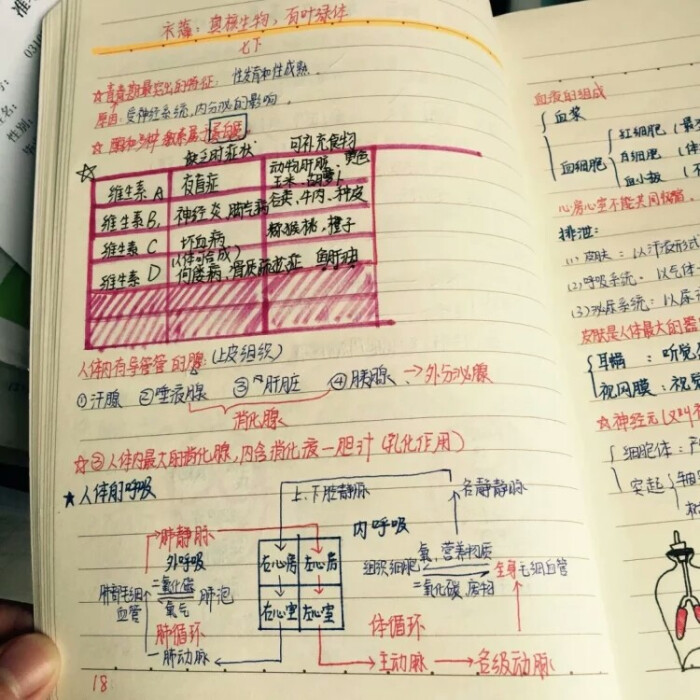 水藻：真核生物，有叶绿体
七下
☆青春期最突出的特征：性发育和性成熟．
原因：受神经系统，内分泌的影响．
缺乏时症状 可补充食物
维生素 A 夜盲症 动物肝脏、黄色玉米、胡萝卜
维生素 B₁ 神经炎、脚气病 谷类、牛肉、种皮
维生素 C 坏血病 猕猴桃，橙子
维生素 D 佝偻病、骨质疏松症 鱼肝油
人体内有导管的腺：（上皮组织）
①汗腺 ②唾液腺 ③肝脏 ④胰腺 → 外分泌腺
消化腺
☆③人体内最大的消化腺，内含消化液一胆汁（乳化作用）
★人体的呼吸
上、下腔静脉 各静脉
肺静脉 内呼吸
外呼吸 右心房 左心房 组织细胞 氧、营养物质 全身毛细血管
肺部毛细血管 二氧化碳 氧气 肺泡 右心室 左心室 二氧化碳、废物
肺循环 体循环
肺动脉 主动脉 → 各级动脉
18
血液的组成
血浆
血细胞 红细胞
白细胞
血小板
心房心室不能共同收缩．
排泄：
(1)皮肤：以汗液形式
(2)呼吸系统：以气体
(3)泌尿系统：以尿
皮肤是人体最大的器
耳蜗：听觉
视网膜：视觉
☆神经元又叫神
细胞体：
突起 轴